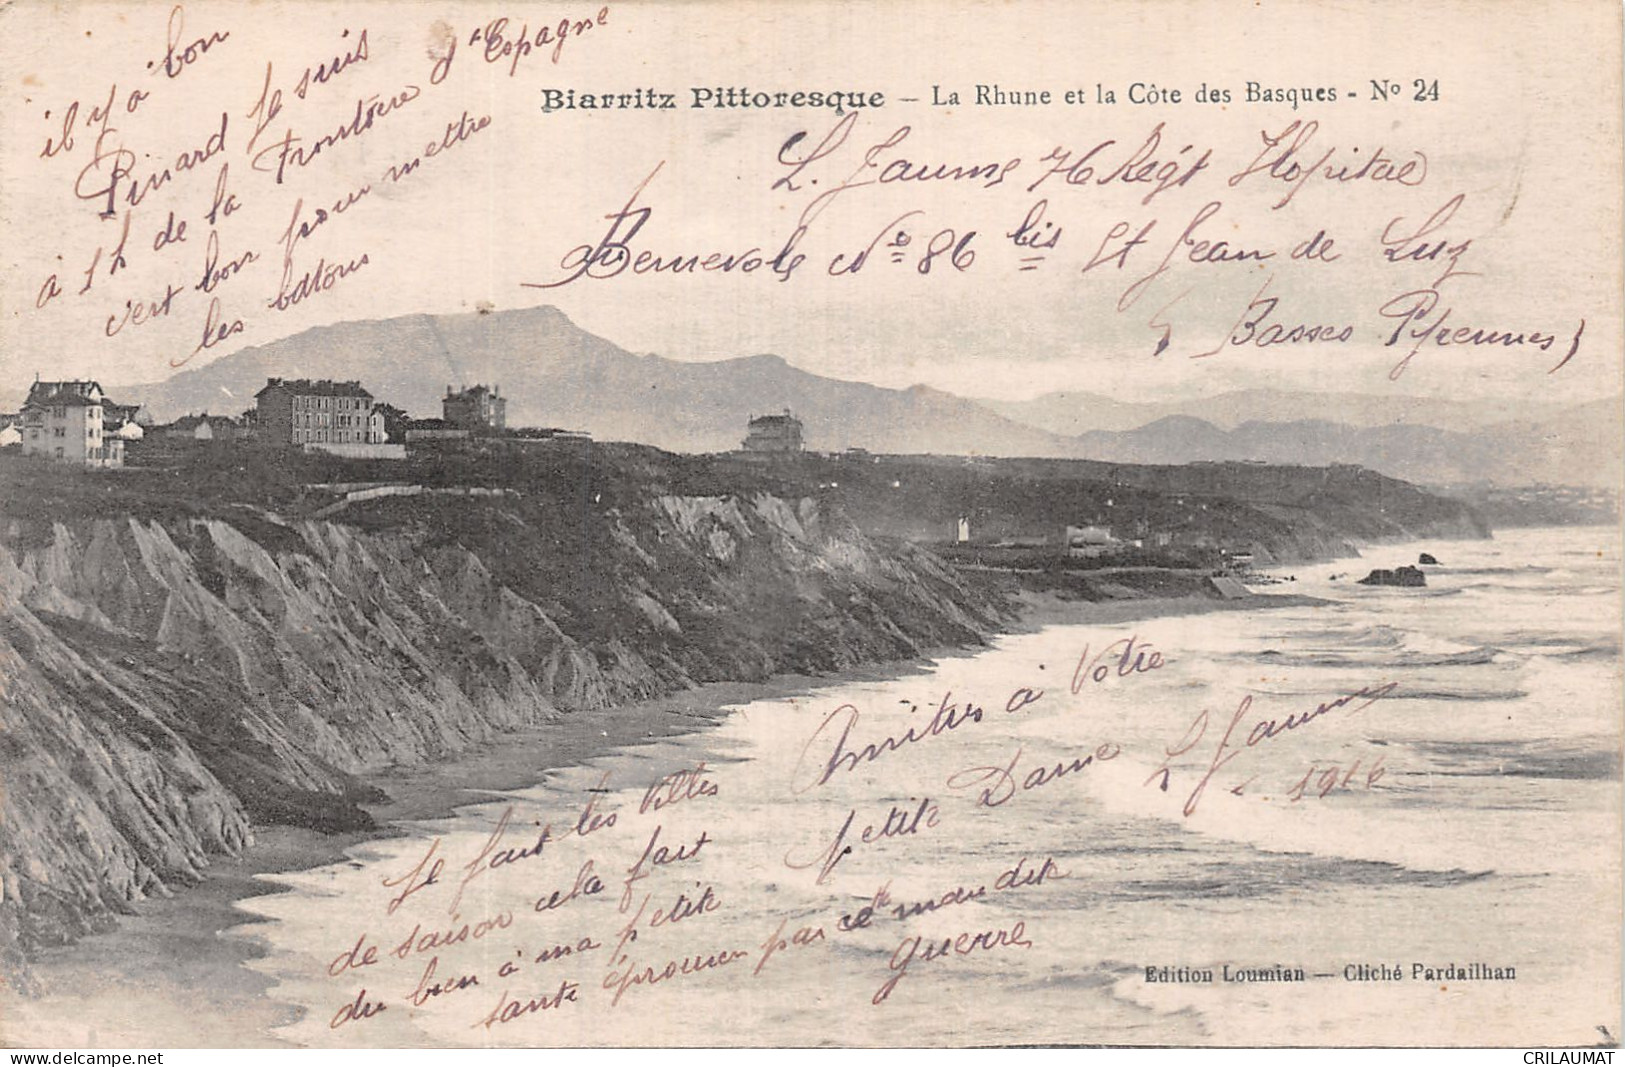 il y a bon
Pinard je suis
à 1h de la Frontière d'Espagne
c'est bon pour mettre
les bâtons
Biarritz Pittoresque — La Rhune et la Côte des Basques - No 24
L. Jaume 76 Régt Hopital
Benevole No 86 bis St Jean de Luz
(Basses Pyrennes)
Amities à Votre
petite Dame L Jaume
1916
Je fait les Villes
de saison cela fait
du bien à ma petite
sante éprouver par cette maudite
guerre
Edition Loumian — Cliché Pardailhan
CRILAUMAT